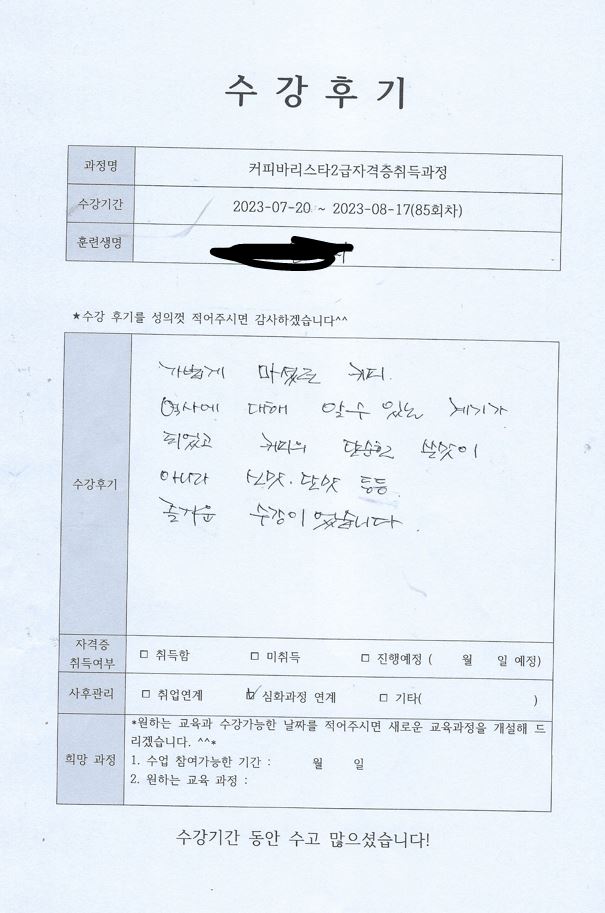 수강후기
과정명 커피바리스타2급자격증취득과정
수강기간 2023-07-20 ~ 2023-08-17(85회차)
훈련생명
★수강 후기를 성의껏 적어주시면 감사하겠습니다^^
가볍게 마셨던 커피.
역사에 대해 알수 있는 계기가
되었고 커피의 단순한 쓴맛이
수강후기 아니라 신맛. 단맛 등등.
즐거운 수강이 었습니다.
자격증 취득여부 □ 취득함 □ 미취득 □ 진행예정 ( 월 일 예정)
사후관리 □ 취업연계 ☑ 심화과정 연계 □ 기타( )
*원하는 교육과 수강가능한 날짜를 적어주시면 새로운 교육과정을 개설해 드
리겠습니다. ^^*
희망 과정 1. 수업 참여가능한 기간 : 월 일
2. 원하는 교육 과정 :
수강기간 동안 수고 많으셨습니다!